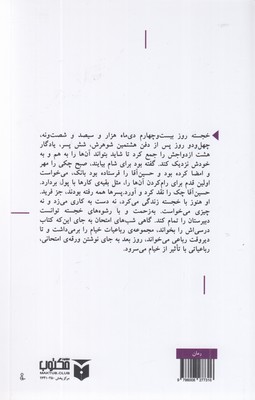 خجسته روز بیست‌وچهارم دی‌ماه هزار و سیصد و شصت‌ونه،
چهل‌ودو روز پس از دفن هشتمین شوهرش، شش پسر، یادگار
هشت ازدواجش را جمع کرد تا شاید بتواند آن‌ها را به هم و به
خودش نزدیک کند. گفته بود برای شام بیایند، صبح چکی را مهر
و امضا کرده بود و حسین‌آقا را فرستاده بود بانک، می‌خواست
اولین قدم برای رام‌کردن آن‌ها را، مثل بقیه‌ی کارها با پول، بردارد.
حسین‌آقا چک را نقد کرد و آورد. پسرها همه رفته بودند، جز فرید.
او هنوز با خجسته زندگی می‌کرد، نه دست به کاری می‌زد و نه
چیزی می‌خواست. به‌زحمت و با رشوه‌های خجسته توانست
دبیرستان را تمام کند. گاهی شب‌های امتحان به جای این‌که کتاب
درسی‌اش را بخواند، مجموعه‌ی رباعیات خیام را برمی‌داشت و تا
دیروقت رباعی می‌خواند، روز بعد به جای نوشتن ورقه‌ی امتحانی،
رباعیاتی با تأثیر از خیام می‌سرود.
رمان
مکتوب
MAKTUB.CLUB